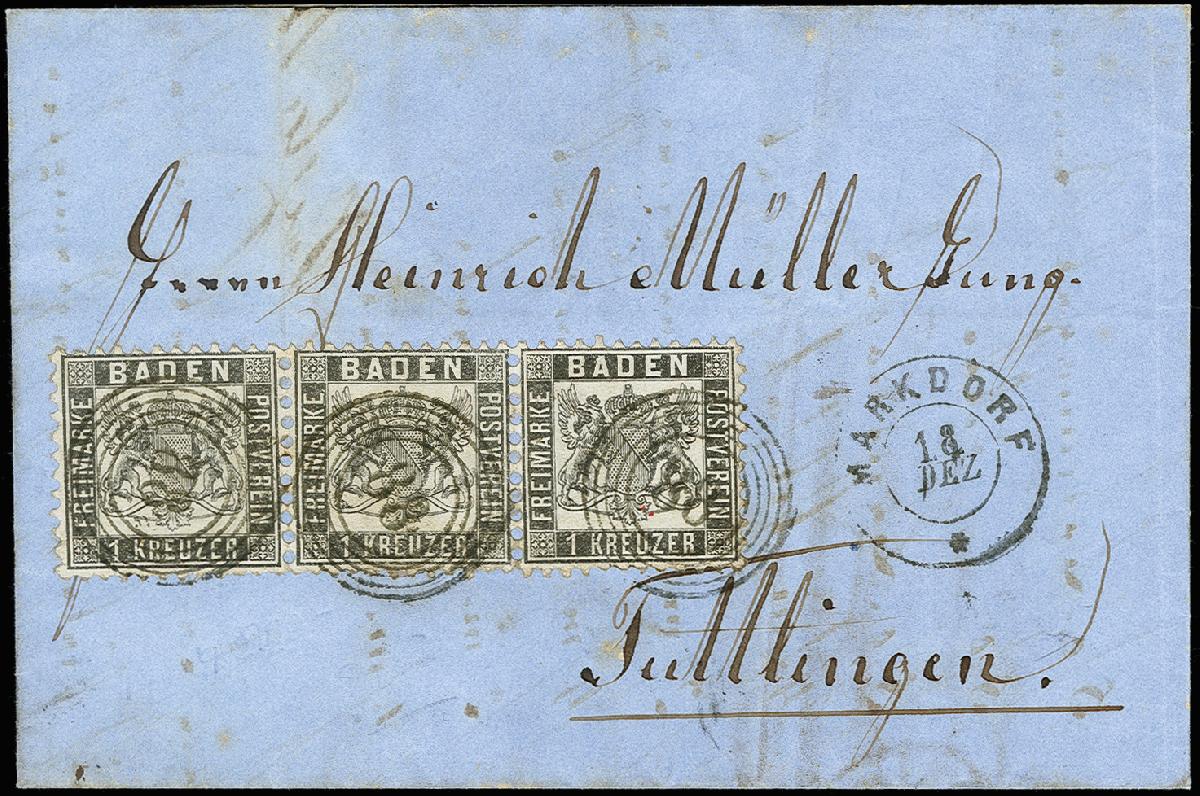 Herrn Heinrich Müller Jung.
BADEN
FREIMARKE
POSTVEREIN
1 KREUZER
BADEN
FREIMARKE
POSTVEREIN
1 KREUZER
BADEN
FREIMARKE
POSTVEREIN
1 KREUZER
MARKDORF
13
DEZ
Tuttlingen.